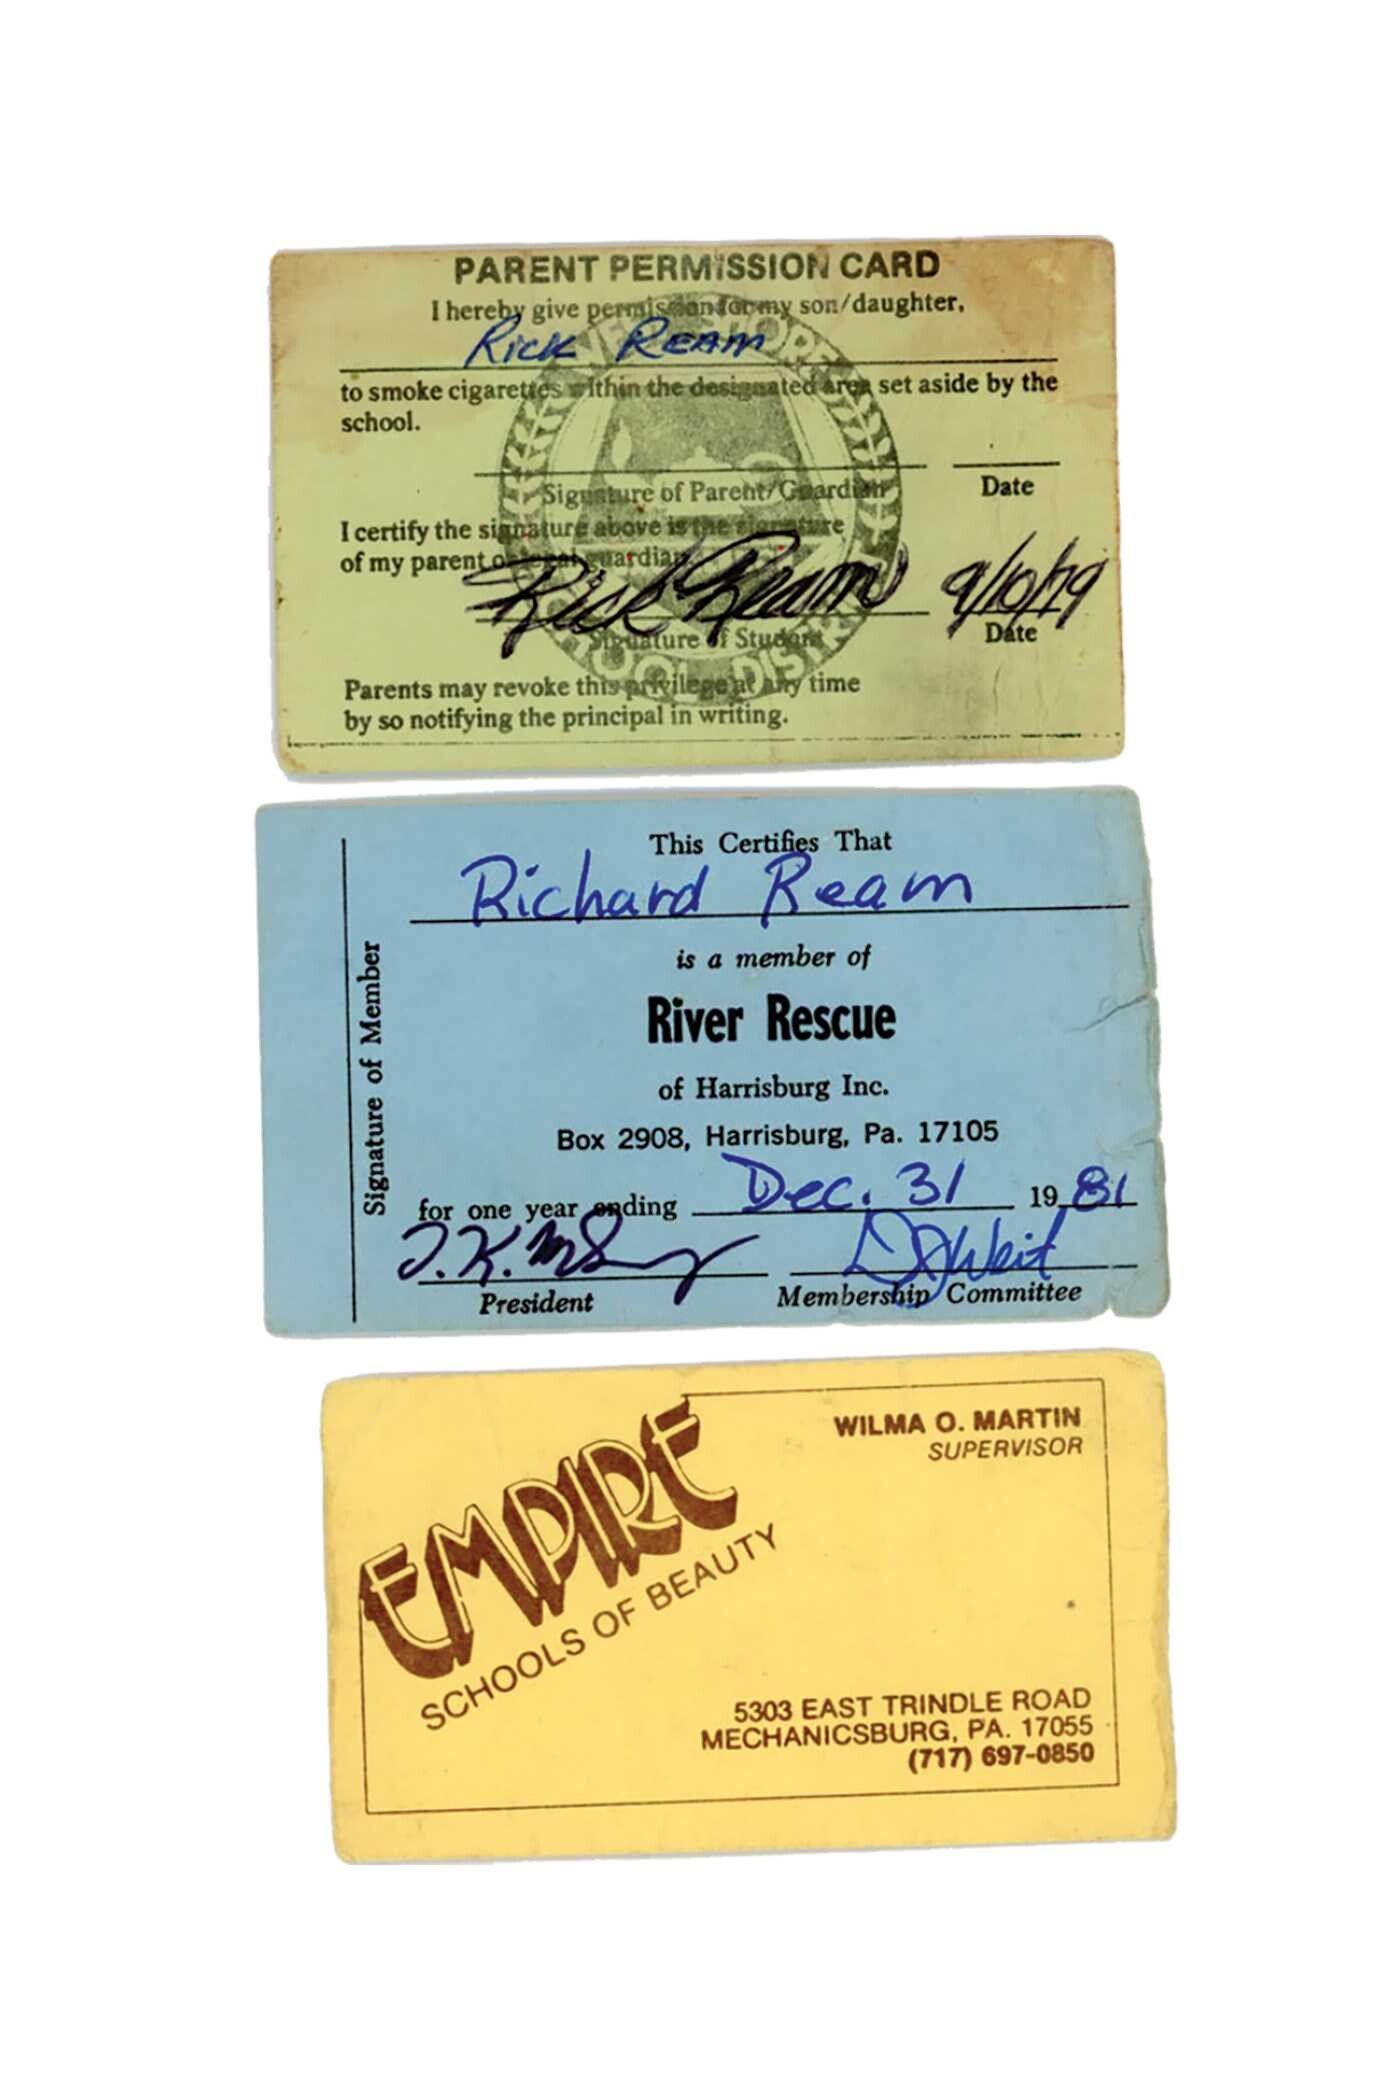 PARENT PERMISSION CARD
I hereby give permission for my son/daughter,
Rick Ream
to smoke cigarettes within the designated area set aside by the
school.
Signature of Parent/Guardian
Date
I certify the signature above is the signature
of my parent or legal guardian.
Rick Ream 9/10/79
Signature of Student
Date
Parents may revoke this privilege at any time
by so notifying the principal in writing.
SCHOOL DISTRICT
Signature of Member
This Certifies That
Richard Ream
is a member of
River Rescue
of Harrisburg Inc.
Box 2908, Harrisburg, Pa. 17105
for one year ending Dec. 31 1981
President
Membership Committee
EMPIRE
SCHOOLS OF BEAUTY
WILMA O. MARTIN
SUPERVISOR
5303 EAST TRINDLE ROAD
MECHANICSBURG, PA. 17055
(717) 697-0850